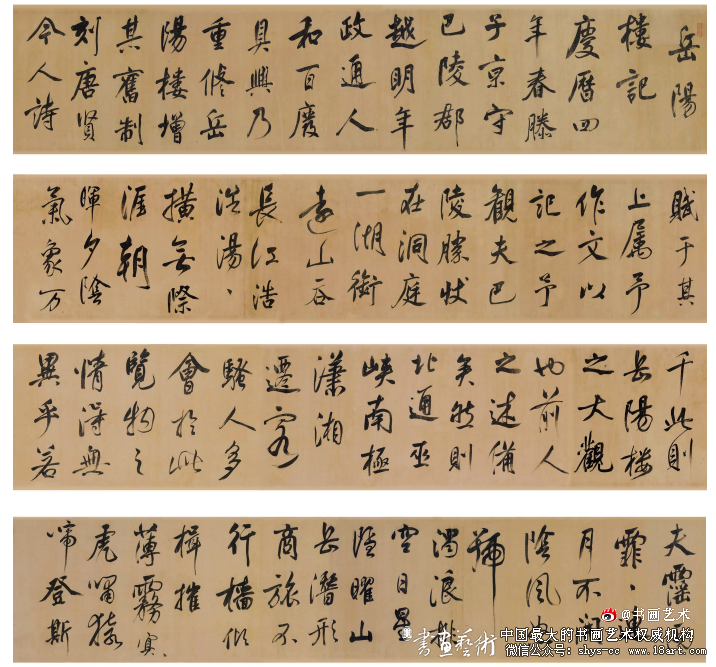 岳陽
樓記
慶曆四
年春滕
子京守
巴陵郡
越明年
政通人
和百廢
具興乃
重修岳
陽樓增
其舊制
刻唐賢
今人詩
賦于其
上属予
作文以
記之予
觀夫巴
陵勝狀
在洞庭
一湖銜
遠山吞
長江浩
浩湯、
橫無際
涯朝
暉夕陰
氣象万
千此則
岳陽樓
之大觀
也前人
之述備
矣然則
北通巫
峽南極
瀟湘
遷客
騷人多
會於此
覽物之
情得無
異乎若
夫霪
霏、
月不
陰風
號
濁浪排
空日星
隱曜山
岳潛形
商旅不
行檣傾
楫摧
薄霧冥
虎嘯猿
啼登斯
@书画艺术
書畫藝術
中国最大的书画艺术权威机构
微信公众号：shys-cc www.18art.com